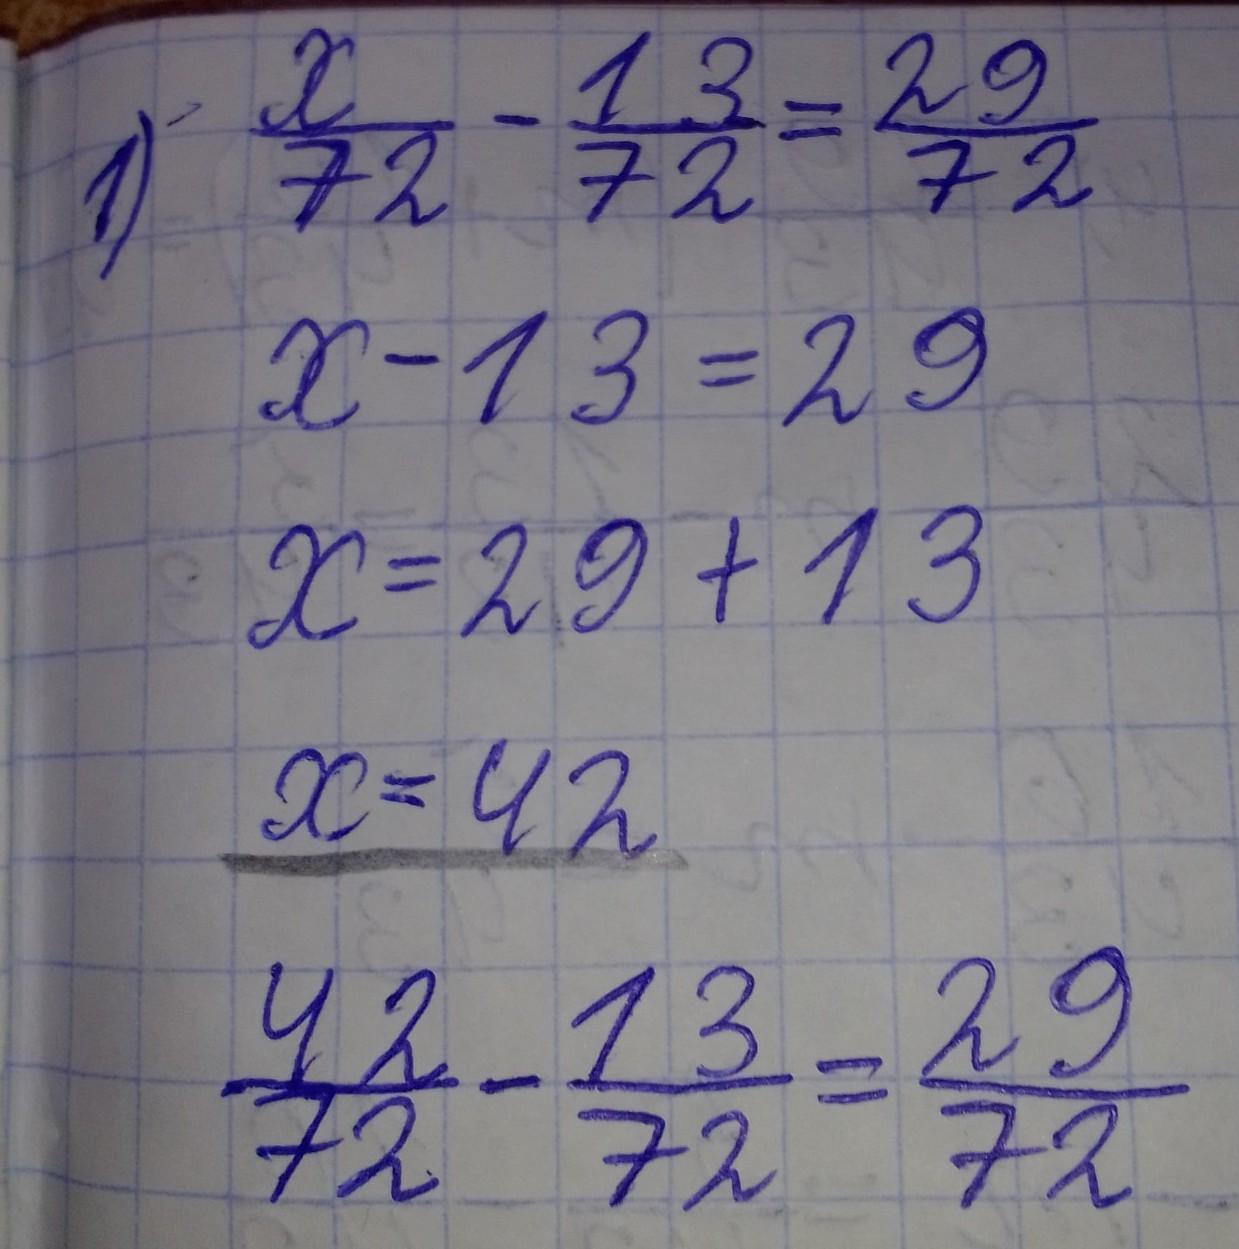 1) x/72 - 13/72 = 29/72
x - 13 = 29
x = 29 + 13
x = 42
42/72 - 13/72 = 29/72